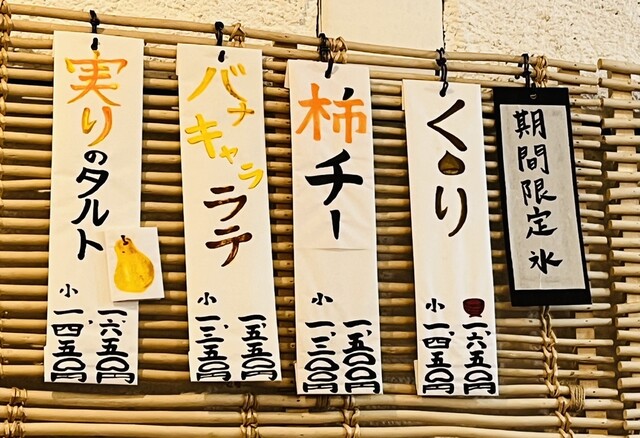 期間限定氷
くり
一、六五〇円
小 一、四五〇円
柿チー
一、五〇〇円
小 一、三〇〇円
バナキャララテ
一、五五〇円
小 一、三五〇円
実りのタルト
一、六五〇円
小 一、四五〇円